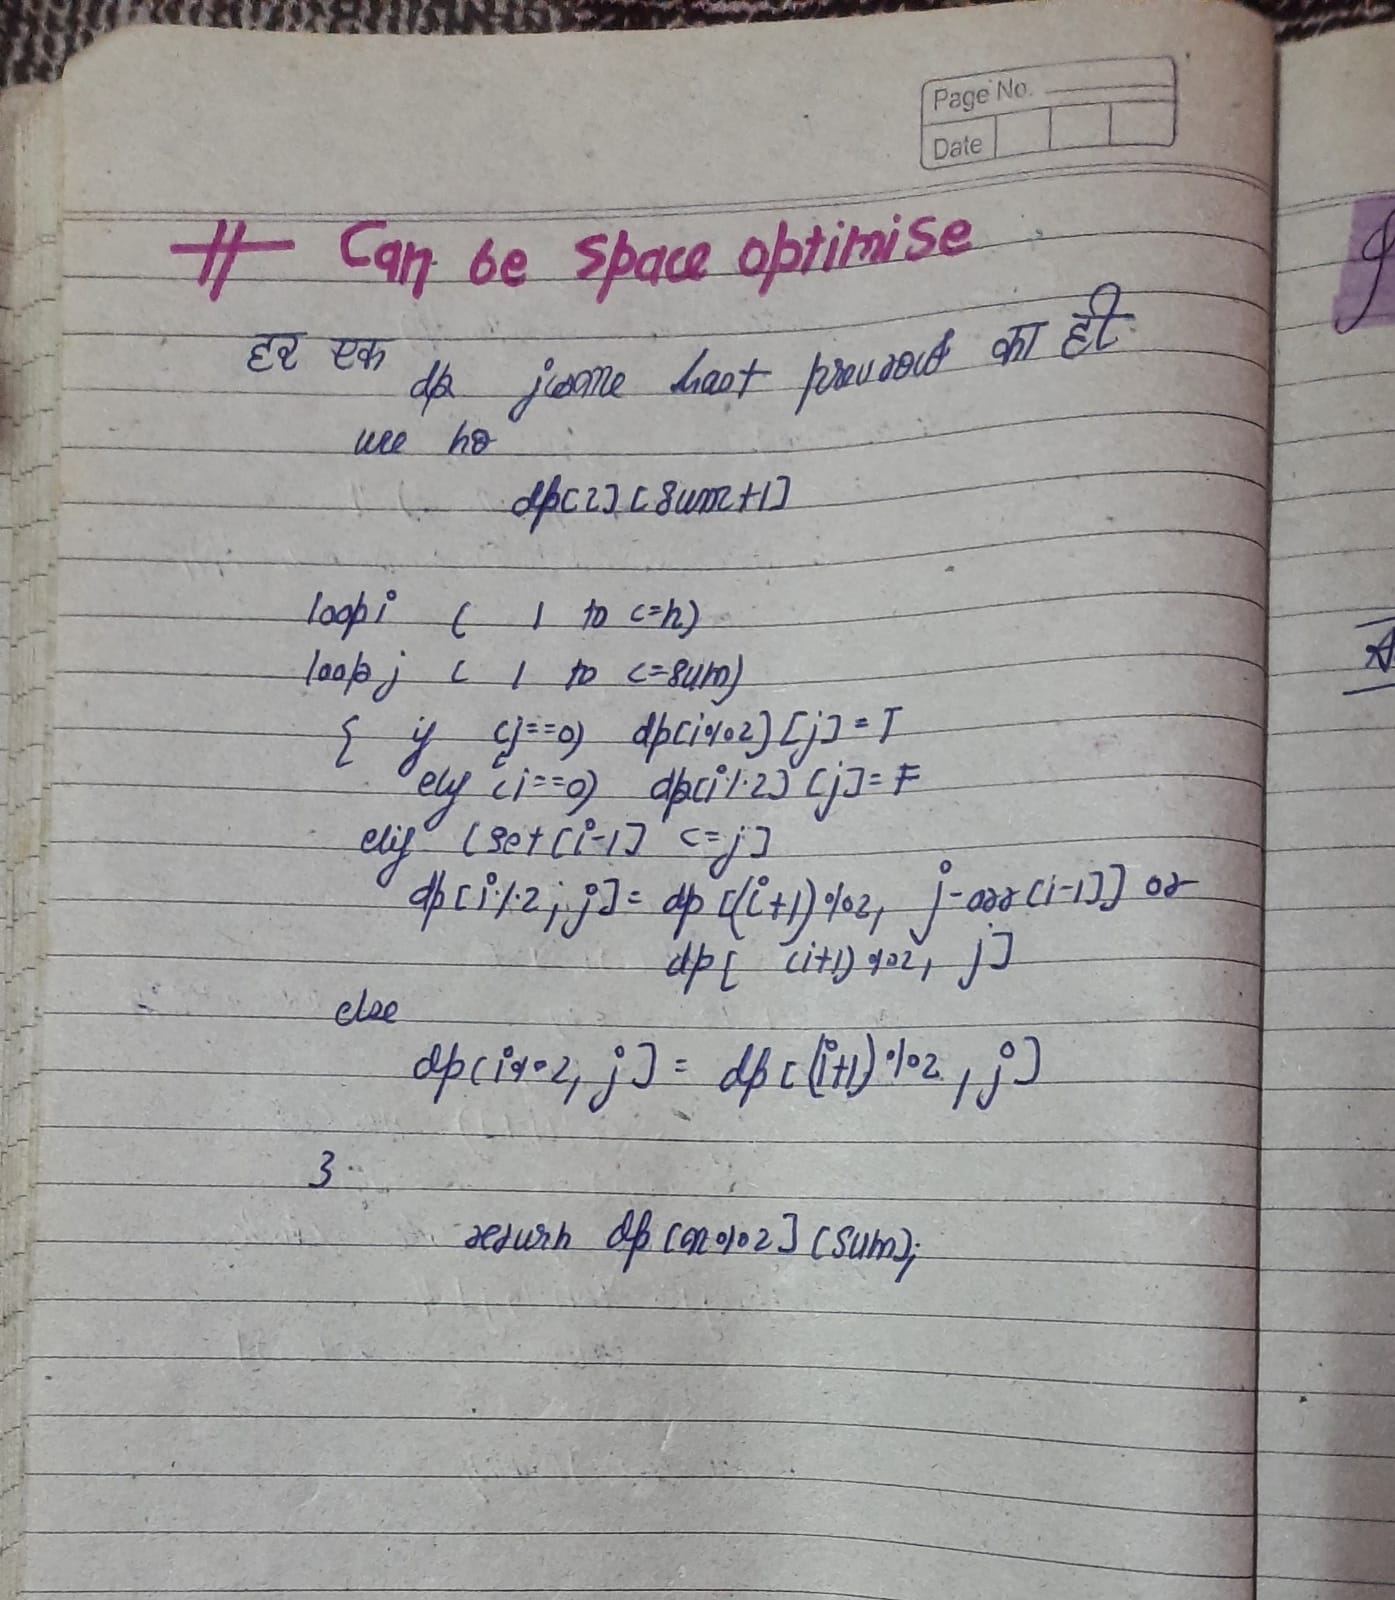 Page No.
Date
# Can be space optimise
हर एक dp just previous का ही
use ho
dp[2][sum+1]
loop i ( 1 to <=n)
loop j ( 1 to <=sum)
{ if (j==0) dp[i%2][j]=T
elif (i==0) dp[i%2][j]=F
elif (set[i-1] <=j]
dp[i%2, j]= dp[(i+1)%2, j-arr[i-1]] or
dp[ (i+1)%2, j]
else
dp[i%2, j] = dp[(i+1)%2, j]
}
return dp[n%2][sum];